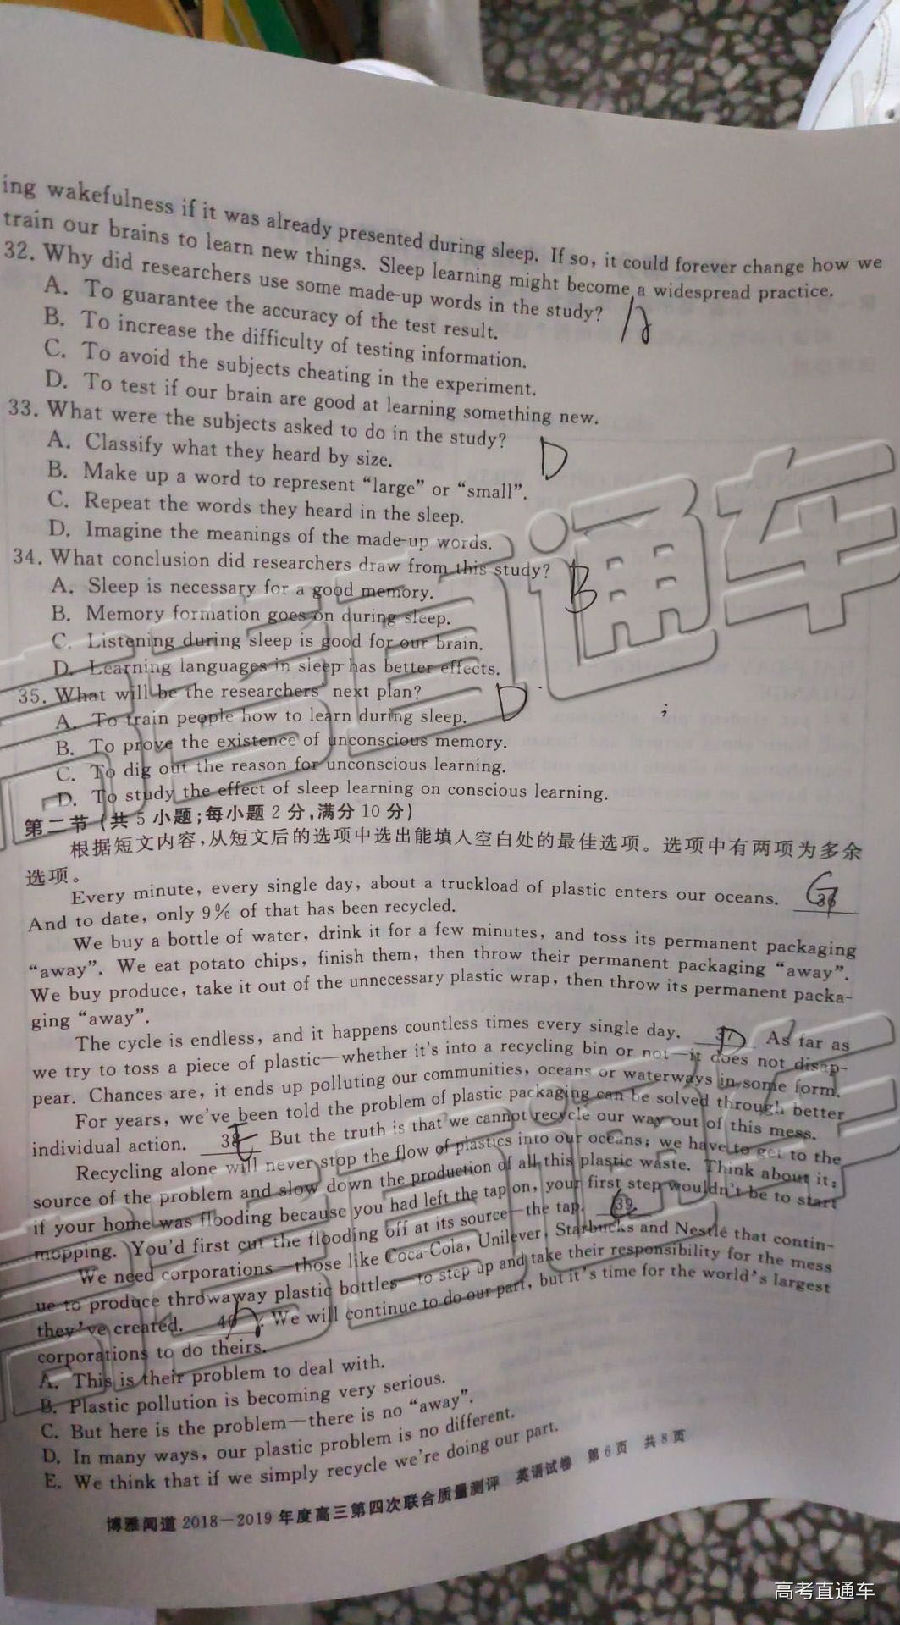 ing wakefulness if it was already presented during sleep. If so, it could forever change how we
train our brains to learn new things. Sleep learning might become a widespread practice.
32. Why did researchers use some made-up words in the study? A
A. To guarantee the accuracy of the test result.
B. To increase the difficulty of testing information.
C. To avoid the subjects cheating in the experiment.
D. To test if our brain are good at learning something new.
33. What were the subjects asked to do in the study? D
A. Classify what they heard by size.
B. Make up a word to represent “large” or “small”.
C. Repeat the words they heard in the sleep.
D. Imagine the meanings of the made-up words.
34. What conclusion did researchers draw from this study? B
A. Sleep is necessary for a good memory.
B. Memory formation goes on during sleep.
C. Listening during sleep is good for our brain.
D. Learning languages in sleep has better effects.
35. What will be the researchers' next plan? D
A. To train people how to learn during sleep.
B. To prove the existence of unconscious memory.
C. To dig out the reason for unconscious learning.
D. To study the effect of sleep learning on conscious learning.
第二节(共5小题;每小题2分,满分10分)
根据短文内容,从短文后的选项中选出能填入空白处的最佳选项。选项中有两项为多余
选项。
Every minute, every single day, about a truckload of plastic enters our oceans. 36 G
And to date, only 9% of that has been recycled.
We buy a bottle of water, drink it for a few minutes, and toss its permanent packaging
“away”. We eat potato chips, finish them, then throw their permanent packaging “away”.
We buy produce, take it out of the unnecessary plastic wrap, then throw its permanent packa-
ging “away”.
The cycle is endless, and it happens countless times every single day. 37 D As far as
we try to toss a piece of plastic—whether it's into a recycling bin or not—it does not disap-
pear. Chances are, it ends up polluting our communities, oceans or waterways in some form.
For years, we've been told the problem of plastic packaging can be solved through better
individual action. 38 But the truth is that we cannot recycle our way out of this mess.
Recycling alone will never stop the flow of plastics into our oceans; we have to get to the
source of the problem and slow down the production of all this plastic waste. Think about it:
if your home was flooding because you had left the tap on, your first step wouldn't be to start
mopping. You'd first cut the flooding off at its source—the tap. 39
We need corporations—those like Coca-Cola, Unilever, Starbucks and Nestlé that contin-
ue to produce throwaway plastic bottles—to step up and take their responsibility for the mess
they've created. 40 We will continue to do our part, but it's time for the world's largest
corporations to do theirs.
A. This is their problem to deal with.
B. Plastic pollution is becoming very serious.
C. But here is the problem—there is no “away”.
D. In many ways, our plastic problem is no different.
E. We think that if we simply recycle we're doing our part.
博雅闻道2018—2019年度高三第四次联合质量测评 英语试卷 第6页 共8页
高考直通车
高考直通车
高考直通车